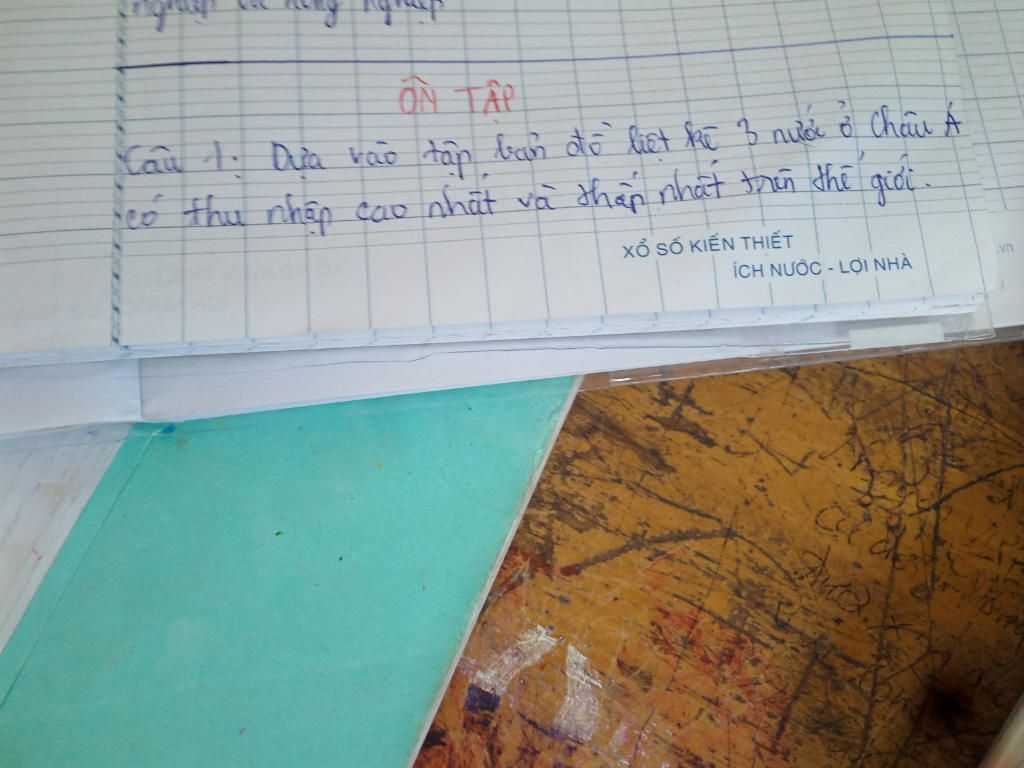 nghiệp và nông nghiệp
ÔN TẬP
Câu 1: Dựa vào tập bản đồ liệt kê 3 nước ở Châu Á
có thu nhập cao nhất và thấp nhất trên thế giới.
XỔ SỐ KIẾN THIẾT
ÍCH NƯỚC - LỢI NHÀ
.vn